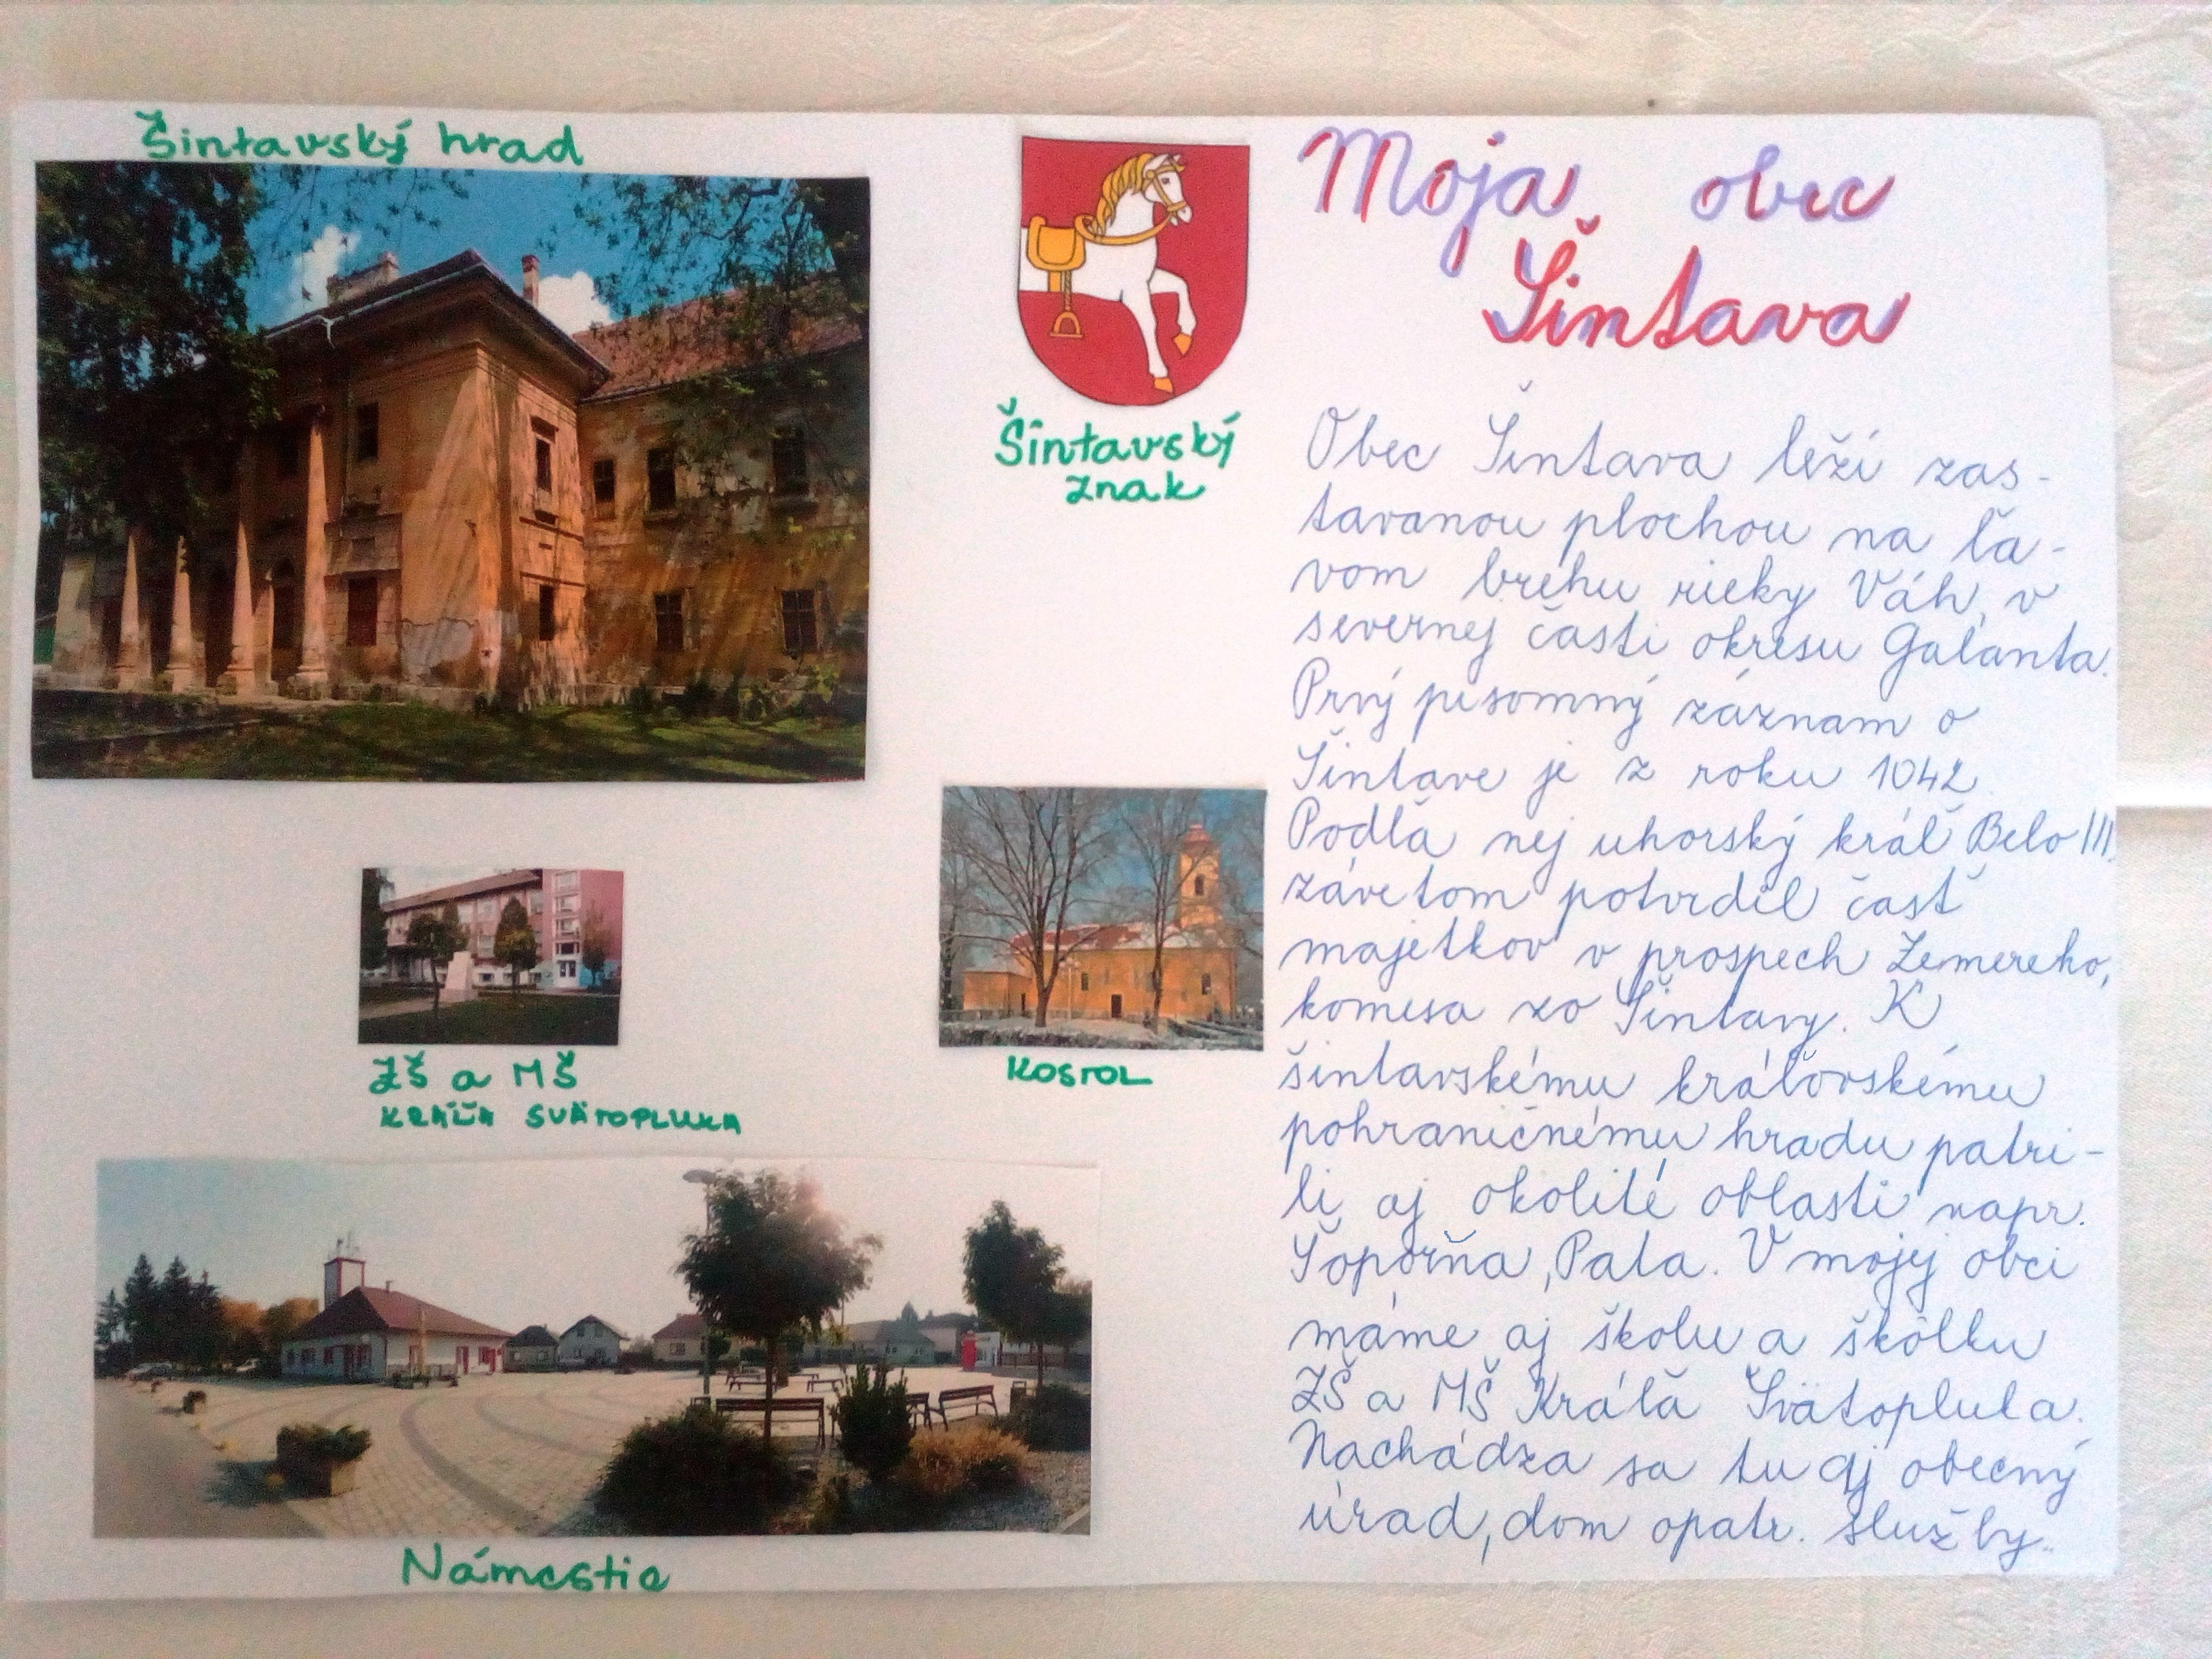 Šintavský hrad
Šintavský
znak
ZŠ a MŠ
KRÁĽA SVÄTOPLUKA
KOSTOL
Námestie
Moja obec
Šintava
Obec Šintava leží zas-
tavanou plochou na ľa-
vom brehu rieky Váh, v
severnej časti okresu Galanta.
Prvý písomný záznam o
Šintave je z roku 1042.
Podľa nej uhorský kráľ Belo III.
závetom potvrdil časť
majetkov v prospech Žemereho,
komesa zo Šintavy. K
šintavskému kráľovskému
pohraničnému hradu patri-
li aj okolité oblasti napr.
Šoporňa, Pata. V mojej obci
máme aj školu a škôlku
ZŠ a MŠ Kráľa Svätopluka.
Nachádza sa tu aj obecný
úrad, dom opatr. služby.